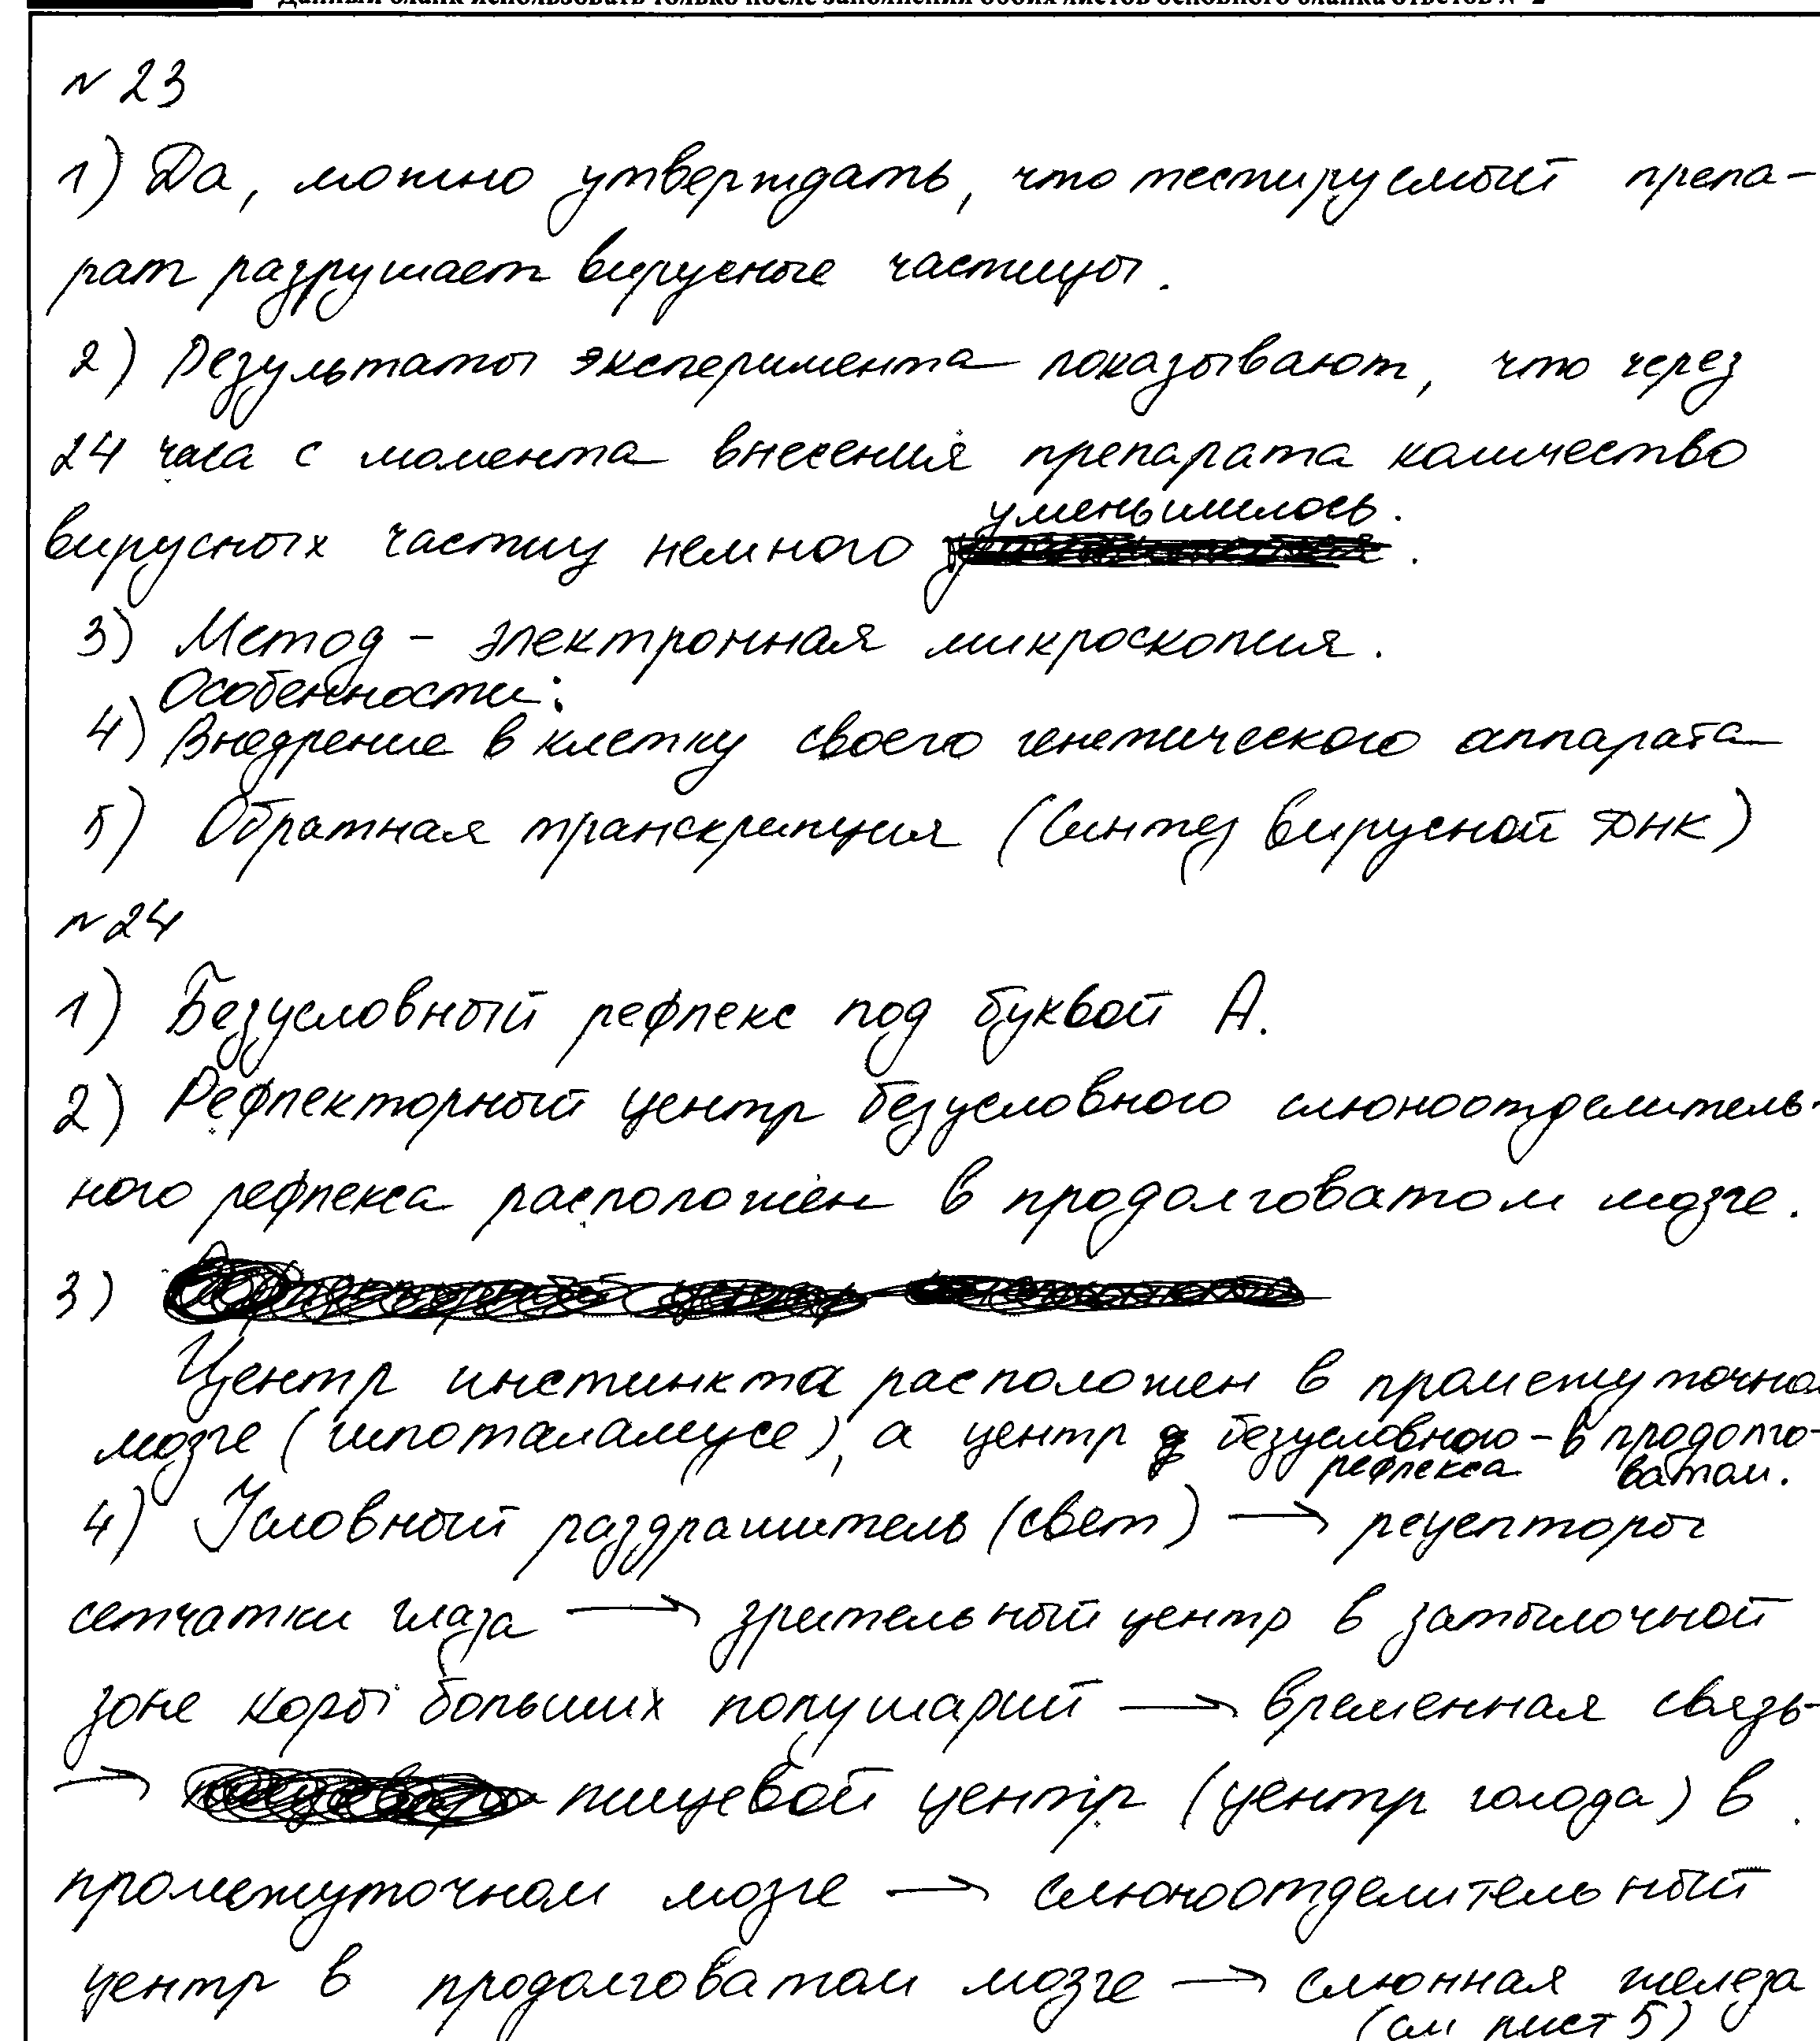 Данный бланк использовать только после заполнения обоих листов основного бланка ответов № 2
№ 23
1) Да, можно утверждать, что тестируемый препа-
рат разрушает вирусные частицы.
2) Результаты эксперимента показывают, что через
24 часа с момента внесения препарата количество
вирусных частиц немного уменьшилось.
3) Метод - электронная микроскопия.
Особенности:
4) Внедрение в клетку своего генетического аппарата
5) Обратная транскрипция (Синтез вирусной ДНК)
№ 24
1) Безусловный рефлекс под буквой А.
2) Рефлекторный центр безусловного слюноотделитель-
ного рефлекса расположен в продолговатом мозге.
3)
Центр инстинкта расположен в промежуточном
мозге (гипоталамусе), а центр безусловного рефлекса - в продолго-
ватом.
4) Условный раздражитель (свет) → рецепторы
сетчатки глаза → зрительный центр в затылочной
зоне коры больших полушарий → временная связь-
→ пищевой центр (центр голода) в
промежуточном мозге → слюноотделительный
центр в продолговатом мозге → слюнная железа
(см лист 5)